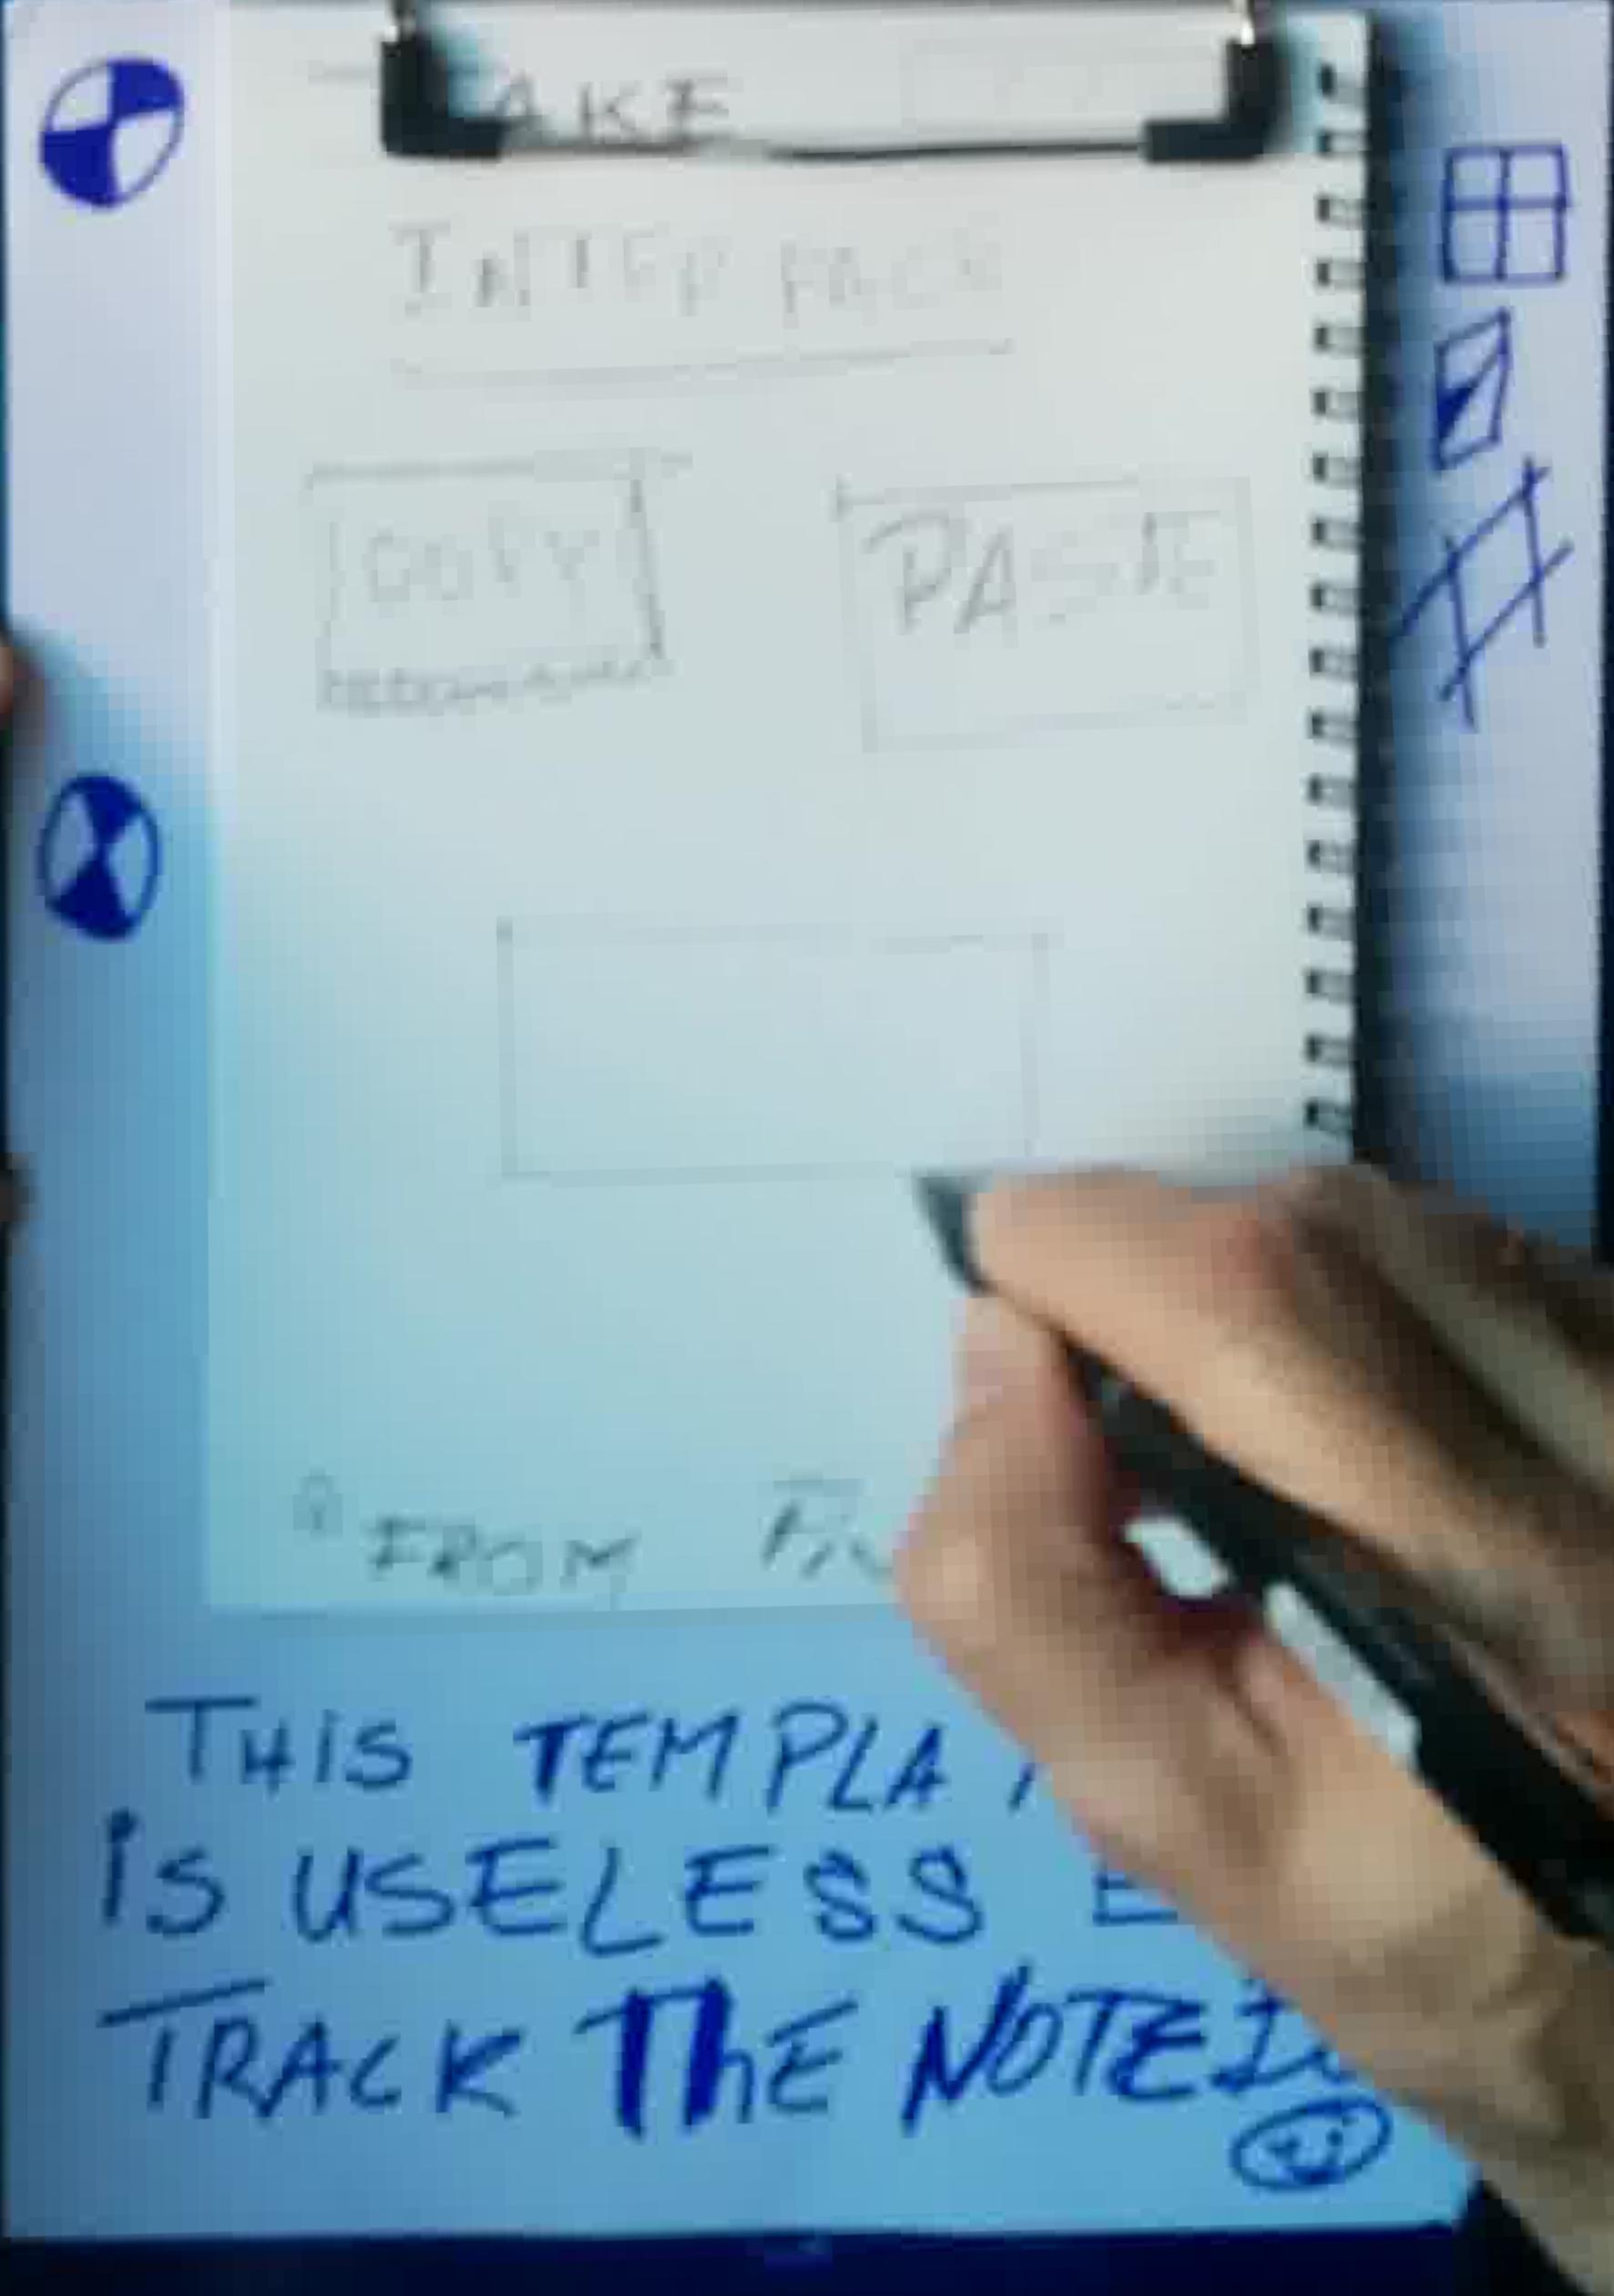 AKE
INTERFACE
COPY PASTE
FROM
THIS TEMPLA
IS USELESS E
TRACK THE NOTE